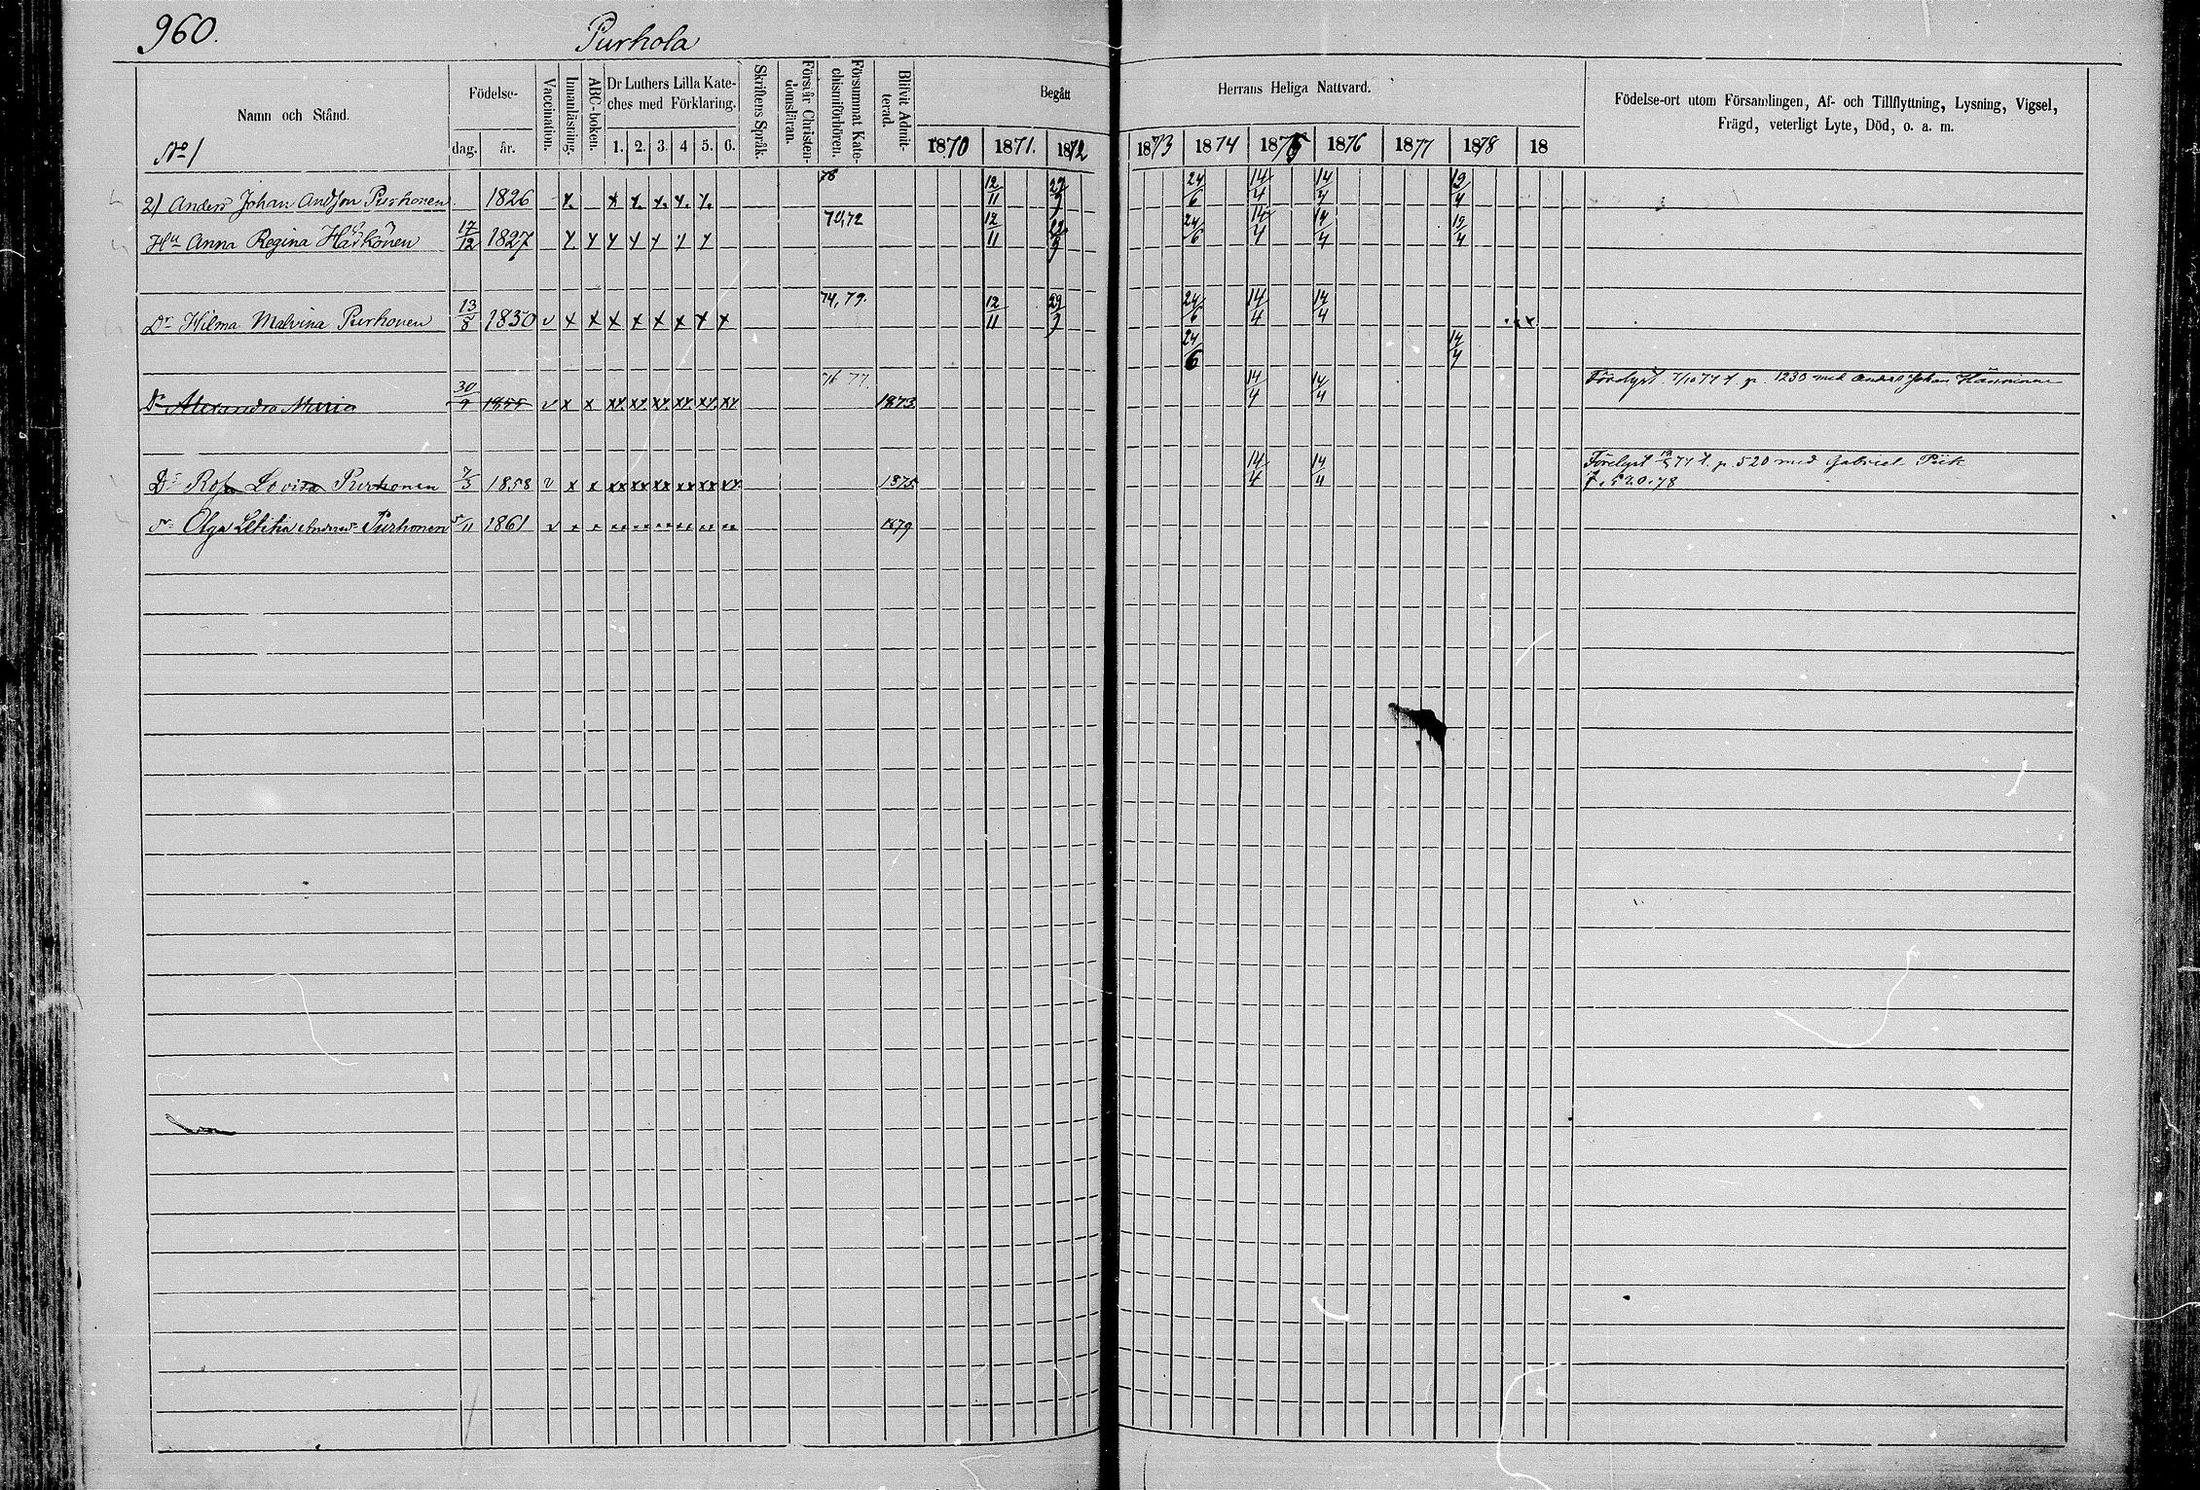 960.
Purhola
Namn och Stånd.
No 1
Födelse-
dag. år.
Vaccination.
Innanläsning.
ABC-boken.
Dr Luthers Lilla Kate-
ches med Förklaring.
1. 2. 3. 4 5. 6.
Skriftens Språk.
Förstår Christen-
domsläran.
Försummat Kate-
chismiförhören.
Blifvit Admit-
terad.
Begått
Herrans Heliga Nattvard.
1870 1871. 1872 1873 1874 1875 1876 1877 1878 18
Födelse-ort utom Församlingen, Af- och Tillflyttning, Lysning, Vigsel,
Frägd, veterligt Lyte, Död, o. a. m.
2) Anders Johan Andsson Purhonen 1826 x. x x. x. x. x. 76 12/11 29/9 24/6 14/4 14/4 19/4
Hu Anna Regina Härkönen 17/12 1827 x x x x x x x 70,72 12/11 29/9 24/6 14/4 14/4 19/4
Dr Hilma Malvina Purhonen 13/8 1850 v x x x x x x x x 74, 79. 12/11 29/9 24/6 14/4 14/4
24/6 14/4
Dr Alexandra Maria 30/9 1855 v x x xx xx xx xx xx xx 76 77. 1873 14/4 14/4 p. 1230 med Anders Johan
Dr Rosa Lovisa Purhonen 7/3 1858 v x x xx xx xx xx xx xx 1875 14/4 14/4 p. 520 med Gabriel Piik
Olga Letitia Purhonen 5/11 1861 v 1879